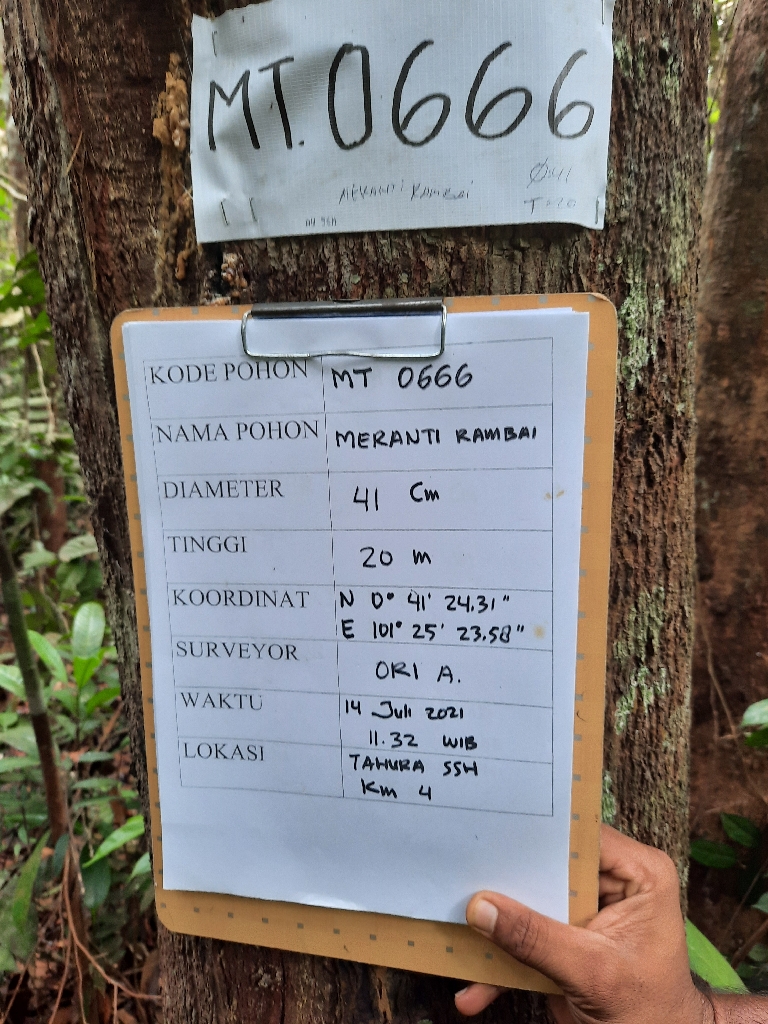 MT. 0666
MERANTI RAMBAI
Ø=41
T=20
KODE POHON MT 0666
NAMA POHON MERANTI RAMBAI
DIAMETER 41 Cm
TINGGI 20 m
KOORDINAT N 0° 41' 24.31"
E 101° 25' 23.58"
SURVEYOR ORI A.
WAKTU 14 Juli 2021
11.32 WIB
LOKASI TAHURA SSH
Km 4